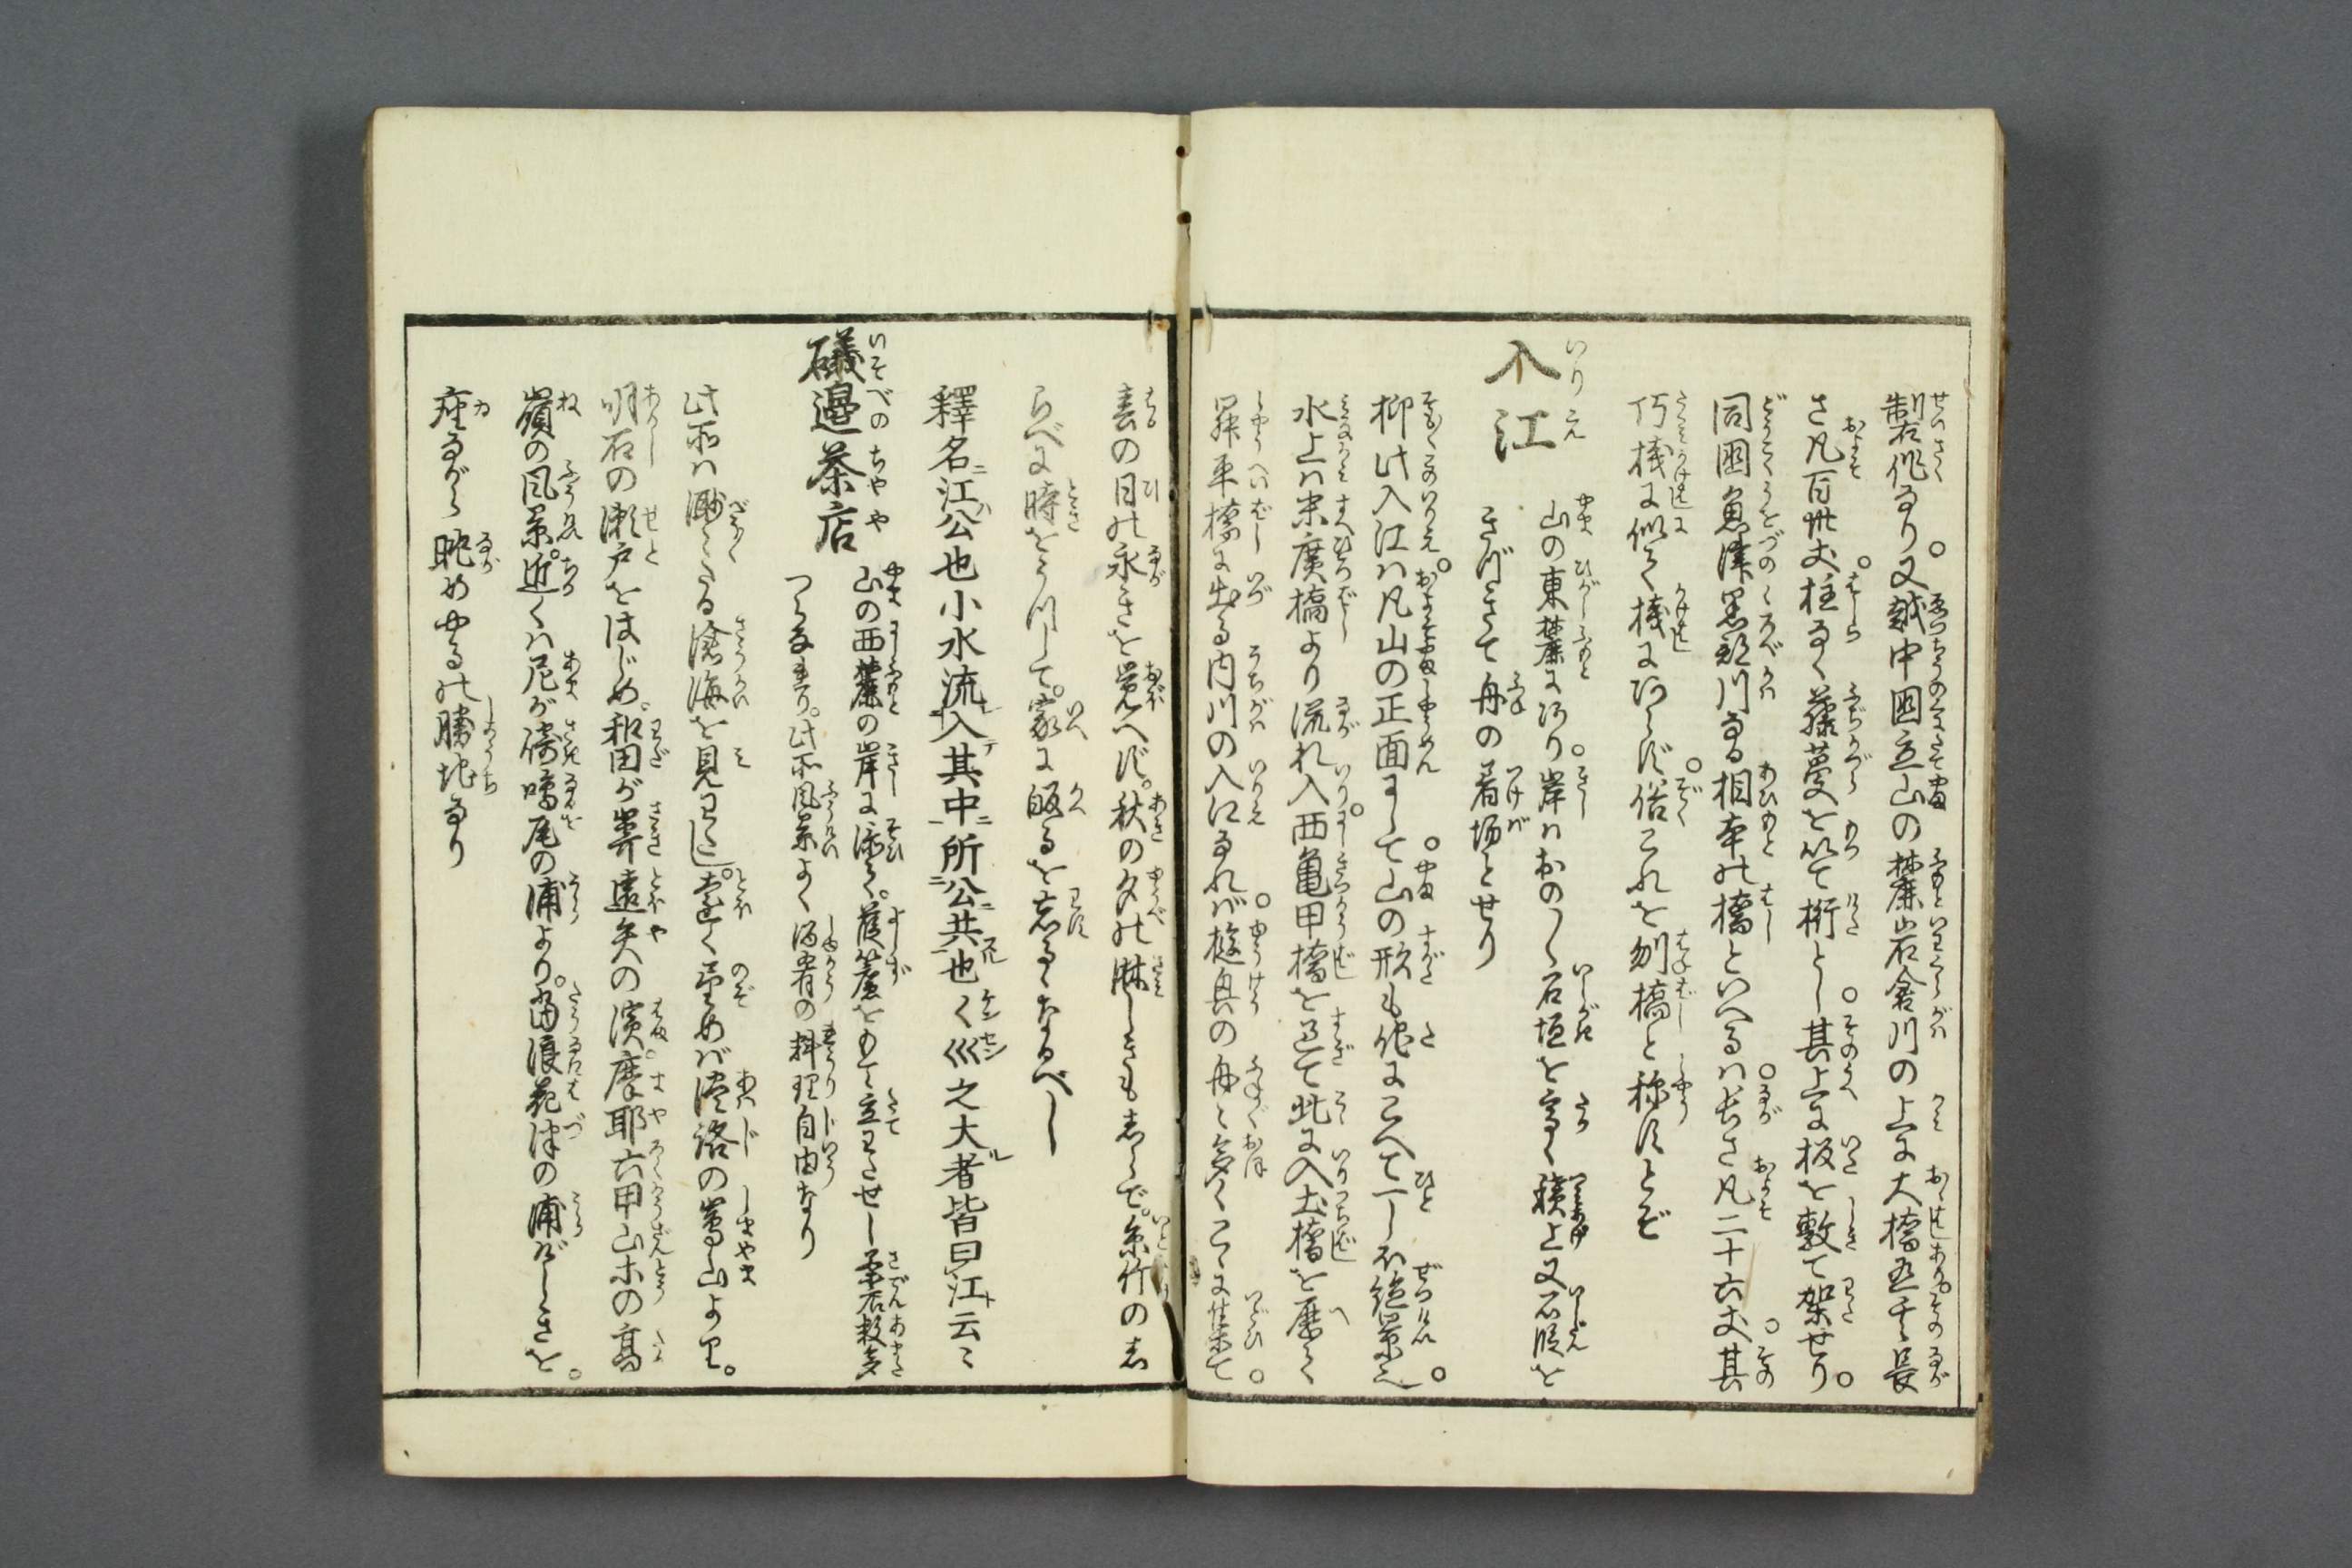 製作なり。又越中国立山の麓岩倉川の上に大橋あり。其長
さ凡百廿丈柱なく。藤蔓を以て桁とし。其上に板を敷て架せり。
同国魚津黒部川なる相本の橋といへるは。長さ凡二十六丈。其
巧棧に似て棧にあらず。俗これを刎橋と称すとぞ
入江
山の東麓にあり。岸はおの〳〵石垣を高く積上又石段を
きづきて舟の着場とせり
抑此入江は。凡山の正面にして。山の形も他にこへて一しほ絶景也。
水上は末廣橋より流れ入。西亀甲橋を過て此に入土橋を歴て
昇平橋に出る内川の入江なれば。遊興の舟々多くこゝに集て。
春の日の永きを覚へず。秋の夕の淋しきも志らで。糸竹の志
らべに時をうつして。家に皈るを忘るゝなるべし
釋名江公也小水流入其中所公共也く巛之大者皆曰江云々
礒邉茶店
山の西麓の岸に添て。葭簀をもて立わたせし茶店数多
つらなれり。此所風景よく酒肴の料理自由なり
此所は渺々たる滄海を見わたし。遠く望めば淡路の嶌山より。
明石の瀬戸をはじめ。和田が崎遠矢の濱。摩耶六甲山等の高
嶺の風景。近くは尼が崎鳴尾の浦より。当浪花津の浦ばしさを。
座ながら眺めやるの勝地なり